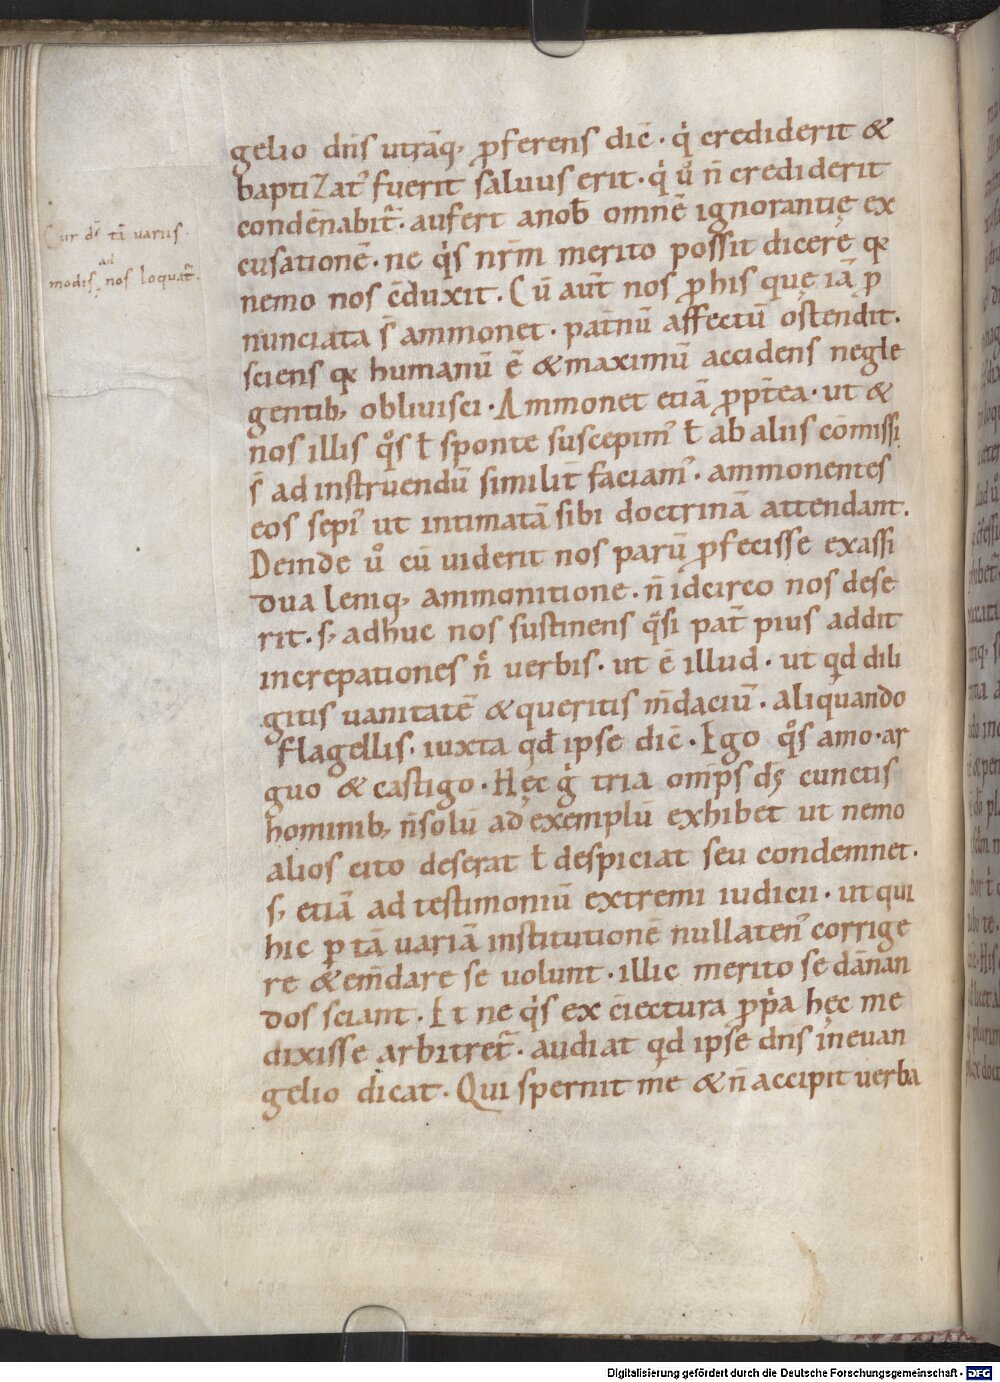 Cur ds̄ tā variis
ad
modis, nos loquat̄.
gelio dn̄s utrāq; p̄ferens dic̄. q̇ crediderit &
baptizat᾽ fuerit saluus erit. q̇ ů n̄ crediderit
condēnabit̄. aufert anob̄ omnē ignorantię ex
cusationē. ne q̇s nr̄m merito possit dicere ꝙ
nemo nos c̄duxit. Cū aut̄ nos ꝓ his quę iā p̄
nunciata s̄ ammonet. pat̄nū affectū ostendit.
sciens ꝙ humanū ē & maximū accidens negle
gentib; obliuisci. Ammonet etiā ꝓpt̄ea. ut &
nos illis qͦs ł sponte suscepim᾽ ł ab aliis cōmissi
s̄ ad instruendū similit̄ faciam᾽. ammonentes
eos sepi᾽ ut intimatā sibi doctrinā attendant.
Deinde ů cū uiderit nos parū ꝓfecisse ex assi
dua leniq; ammonitione. n̄ idcirco nos dese
rit. s; adhuc nos sustinens qͣsi pat̄ pius addit
increpationes nͨ uerbis. ut ē illud. ut qd dili
gitis uanitatē & queritis m̄daciū. aliquando
flagellis. iuxta qđ ipse dic̄. Ego qͦs amo. ar
guo & castigo. Hęc g̊ tria omīps ds̄ cunctis
hominib; n̄ solū ad exemplū exhibet ut nemo
alios cito deserat ł despiciat seu condemnet.
s; etiā ad testimoniū extremi iudicii. ut qui
hic p̱ tā uariā institutionē nullaten᾽ corrige
re & em̄dare se uolunt. illic merito se dānan
dos sciant. Et ne q̇s ex c̄iectura ꝓp̄a hęc me
dixisse arbitret̄. audiat qd ipse dn̄s in euan
gelio dicat. Qui spernit me & n̄ accipit uerba
Digitalisierung gefördert durch die Deutsche Forschungsgemeinschaft - DFG